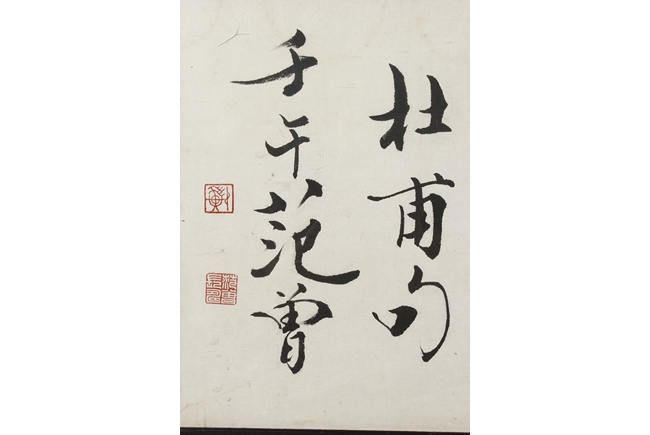 杜甫句
壬午范曾